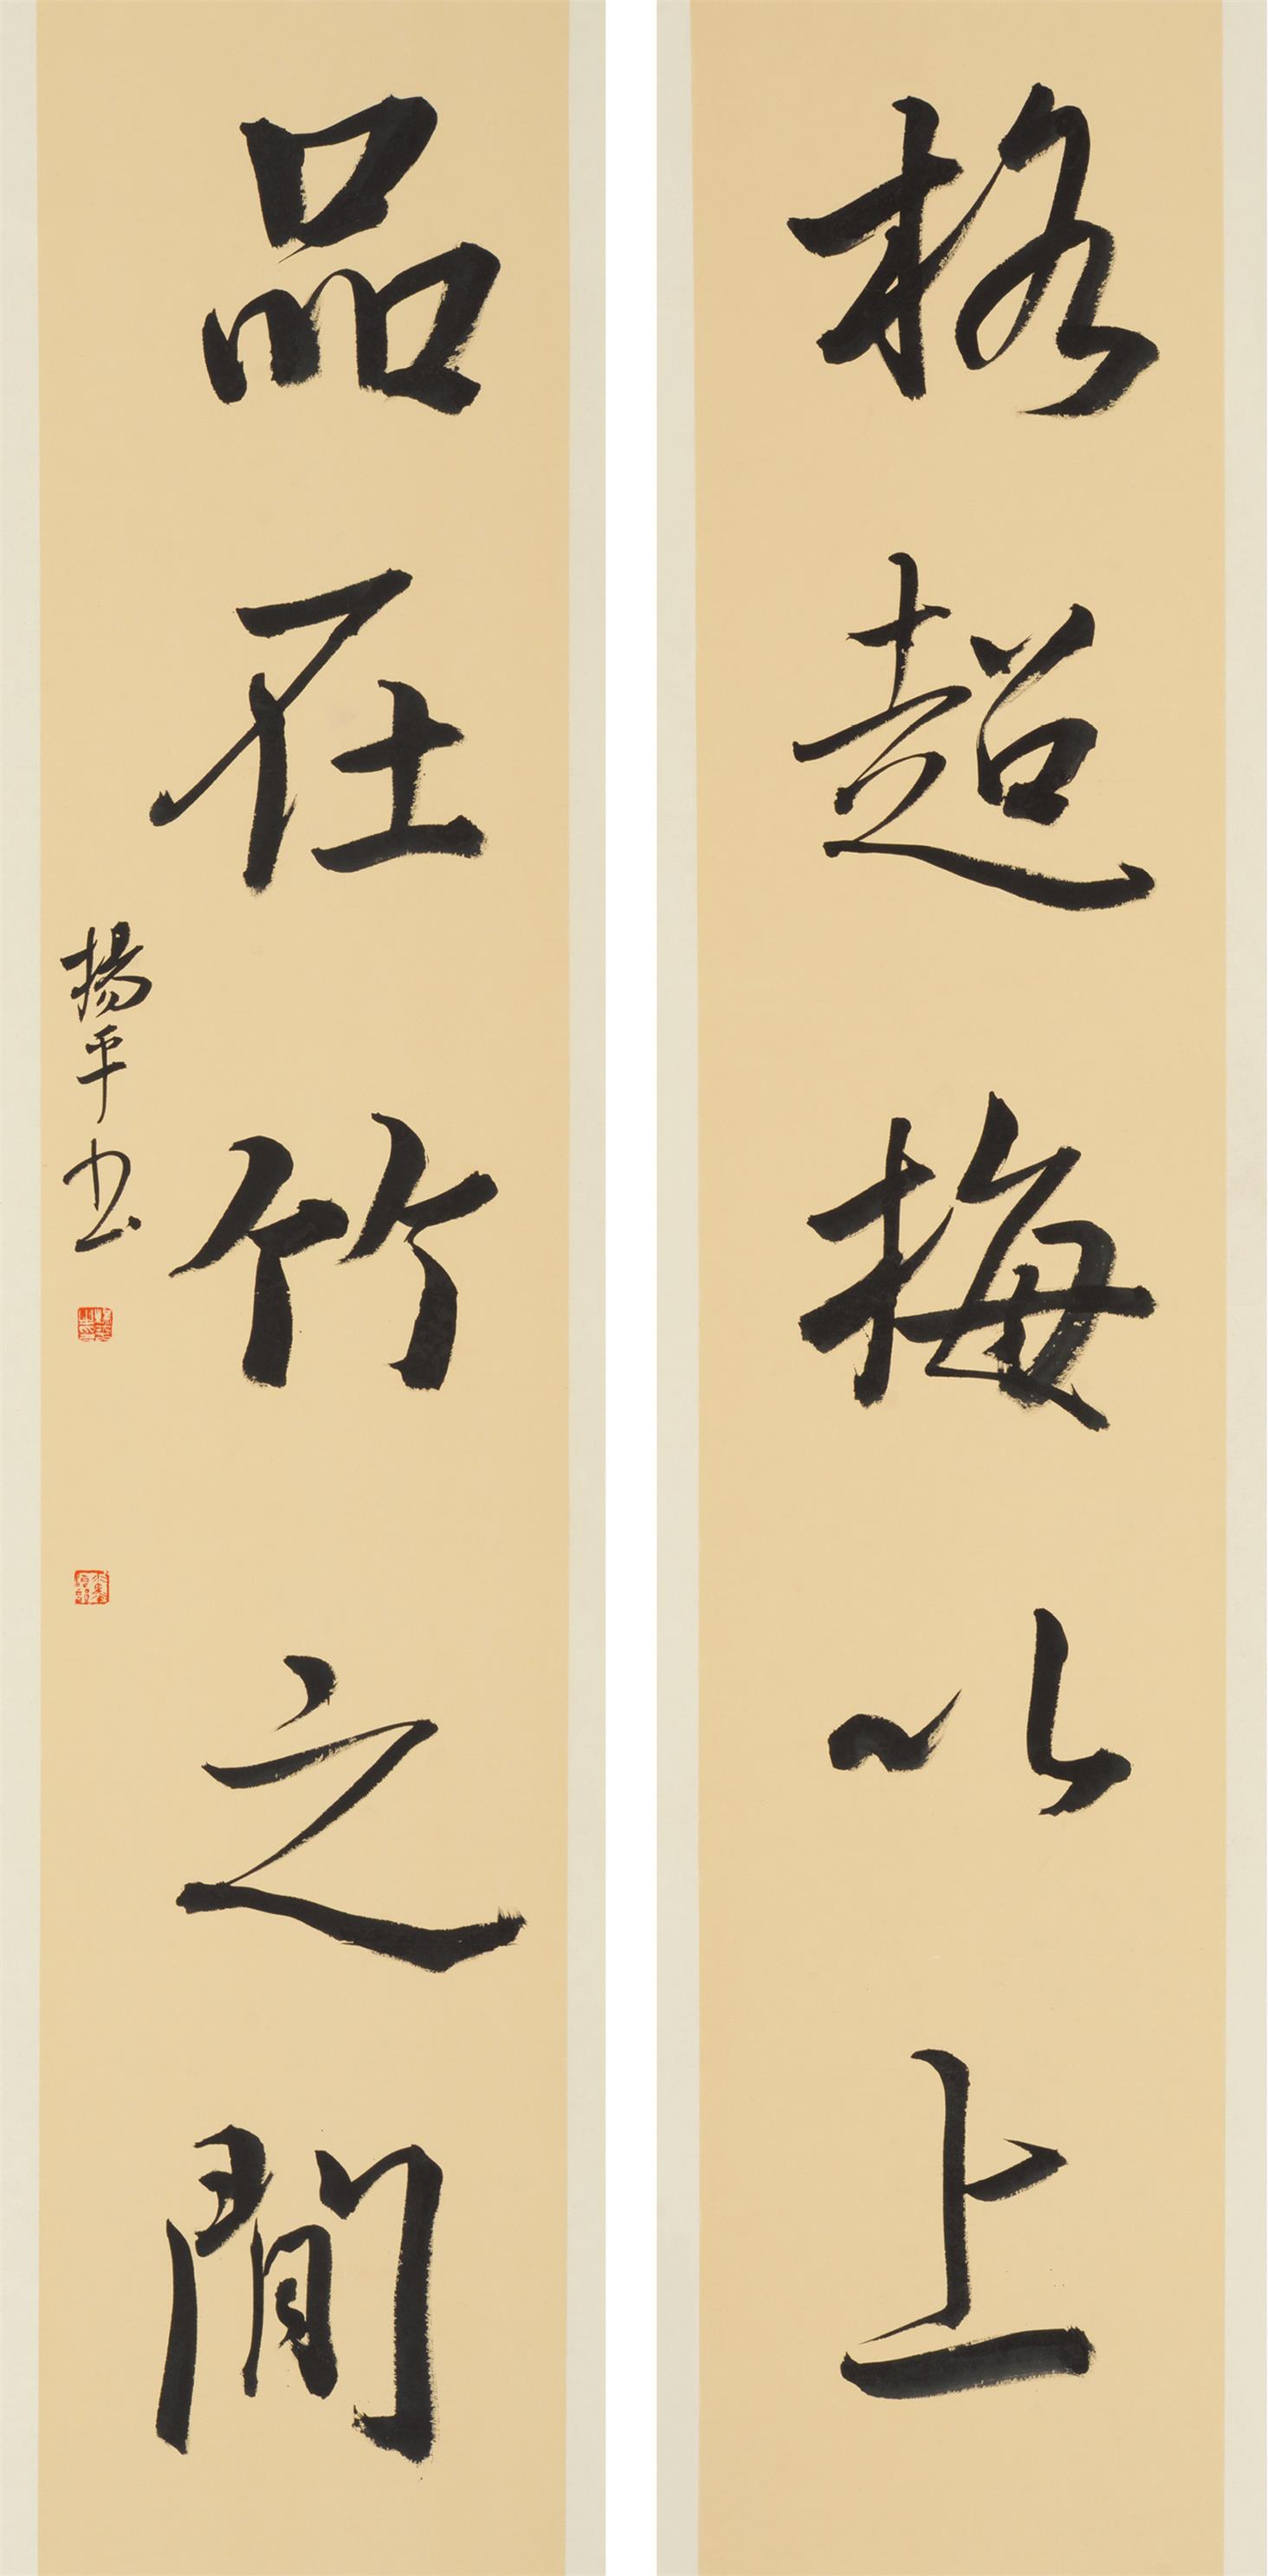 格超梅以上
品在竹之間
揚平书